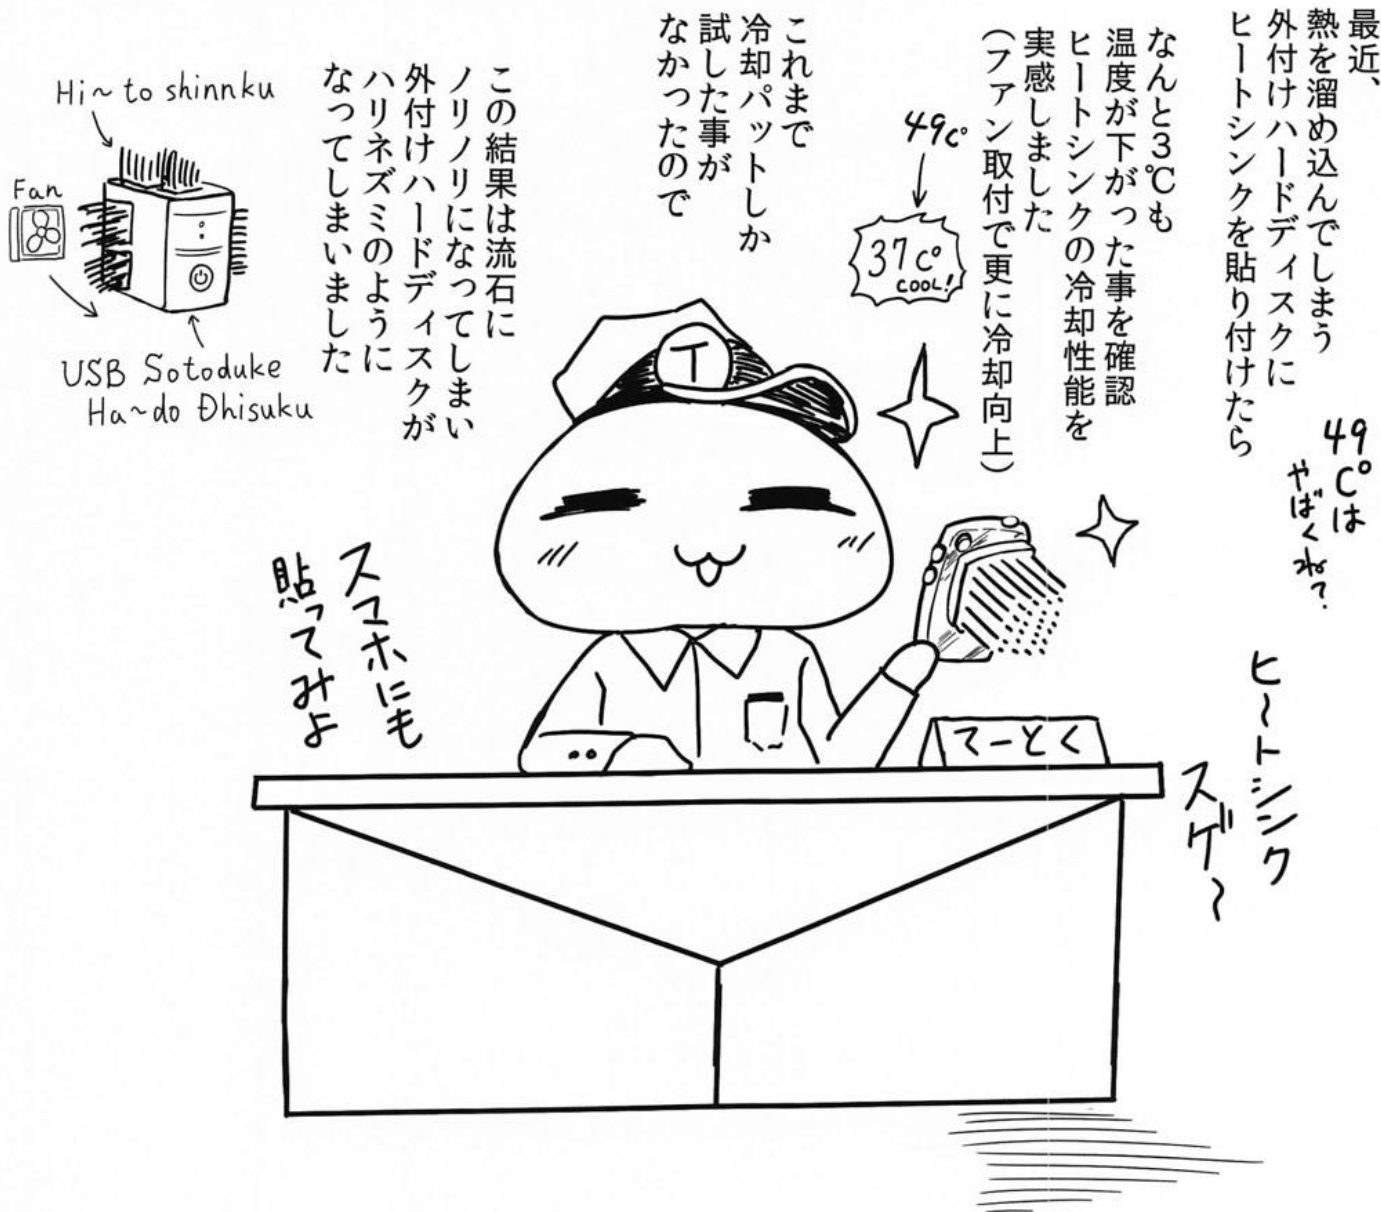 最近、
熱を溜め込んでしまう
外付けハードディスクに
ヒートシンクを貼り付けたら
49C°は
やばくね?
なんと3℃も
温度が下がった事を確認
ヒートシンクの冷却性能を
実感しました
(ファン取付で更に冷却向上)
49C°
37C°
COOL!
これまで
冷却パットしか
試した事が
なかったので
この結果は流石に
ノリノリになってしまい
外付けハードディスクが
ハリネズミのように
なってしまいました
Hi~to shinnku
Fan
USB Sotoduke
Ha~do Dhisuku
T
ヒ~トシンク
スゲ~
てーとく
スマホにも
貼ってみよ